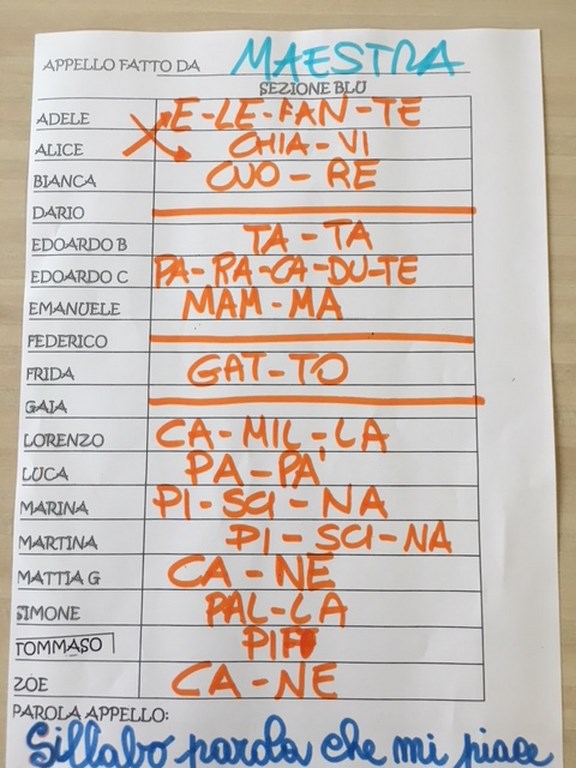 APPELLO FATTO DA MAESTRA
SEZIONE BLU
ADELE E-LE-FAN-TE
ALICE CHIA-VI
BIANCA CUO-RE
DARIO
EDOARDO B TA-TA
EDOARDO C PA-RA-CA-DU-TE
EMANUELE MAM-MA
FEDERICO
FRIDA GAT-TO
GAIA
LORENZO CA-MIL-LA
LUCA PA-PA'
MARINA PI-SCI-NA
MARTINA PI-SCI-NA
MATTIA G CA-NE
SIMONE PAL-LA
TOMMASO
ZOE CA-NE
PAROLA APPELLO:
Sillabo parola che mi piace